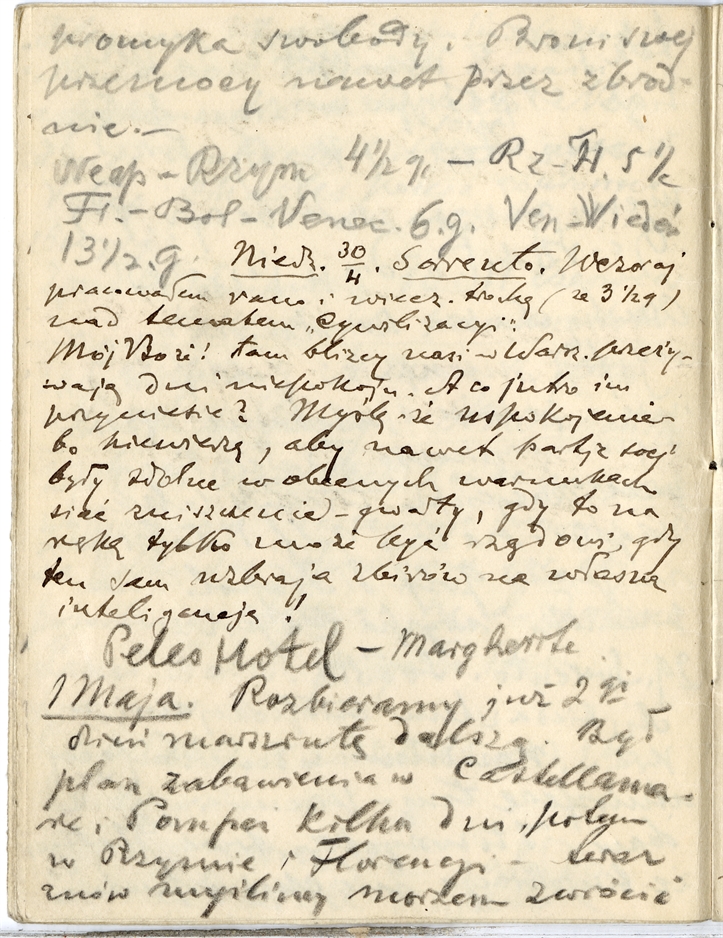 promyka swobody. Broni swej
przemocy nawet przez zbrod-
nie.-
Neap - Rzym 4½ g. - Rz-Fl. 5½
Fl.-Bol-Venec. 6.g. Ven-Wiedeń
13½.g. Niedz. 30/4. Sorrento. Wczoraj
pracowałem rano i wiecz. trochę (ze 3½g)
nad tematem "Cywilizacyi".
Mój Boże! tam bliscy nasi w Warsz. przeży-
wają dni niepokoju. A co jutro im
przyniesie? Myślę że uspokojenie
bo niewierzę, aby nawet partje socj
były zdolne w obecnych warunkach
siać zniszczenie - gwałty, gdy to na
rękę tylko może być rządowi, gdy
ten sam uzbraja zbirów na własną
inteligencję!
Peles Hotel - Margherite
1 Maja. Rozbieramy już 2gi
dzień marszrutę dalszą. Był
plan zabawienia w Castellama-
re i Pompei kilka dni, potem
w Rzymie i Florencyi - teraz
znów myślimy morzem zwrócić